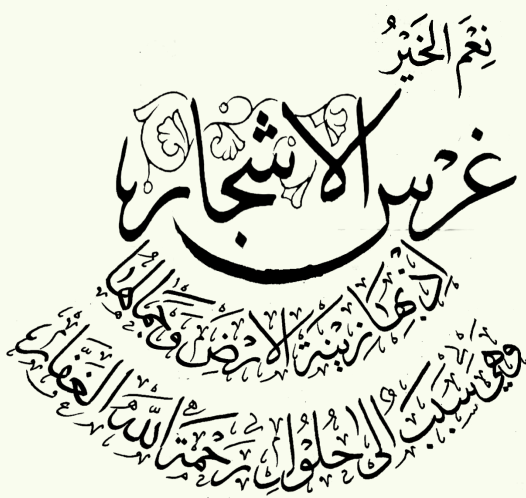 نِعْمَ الخَيْرُ
غرس الاشجار
اذ بها زينة الارض وجمالها
وهي سبب الى حلول رحمة الله الغفار